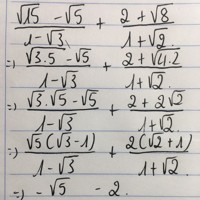 (√15 − √5)/(1−√3) + (2 + √8)/(1 + √2.)
=) (√3.5 − √5)/(1 − √3) + (2 + √4.2)/(1 + √2.)
=) (√3.√5 − √5)/(1 − √3) + (2 + 2√2)/(1 + √2.)
=) (√5(√3−1))/(1 − √3) + (2(√2+1))/(1 + √2.)
=) − √5 − 2.